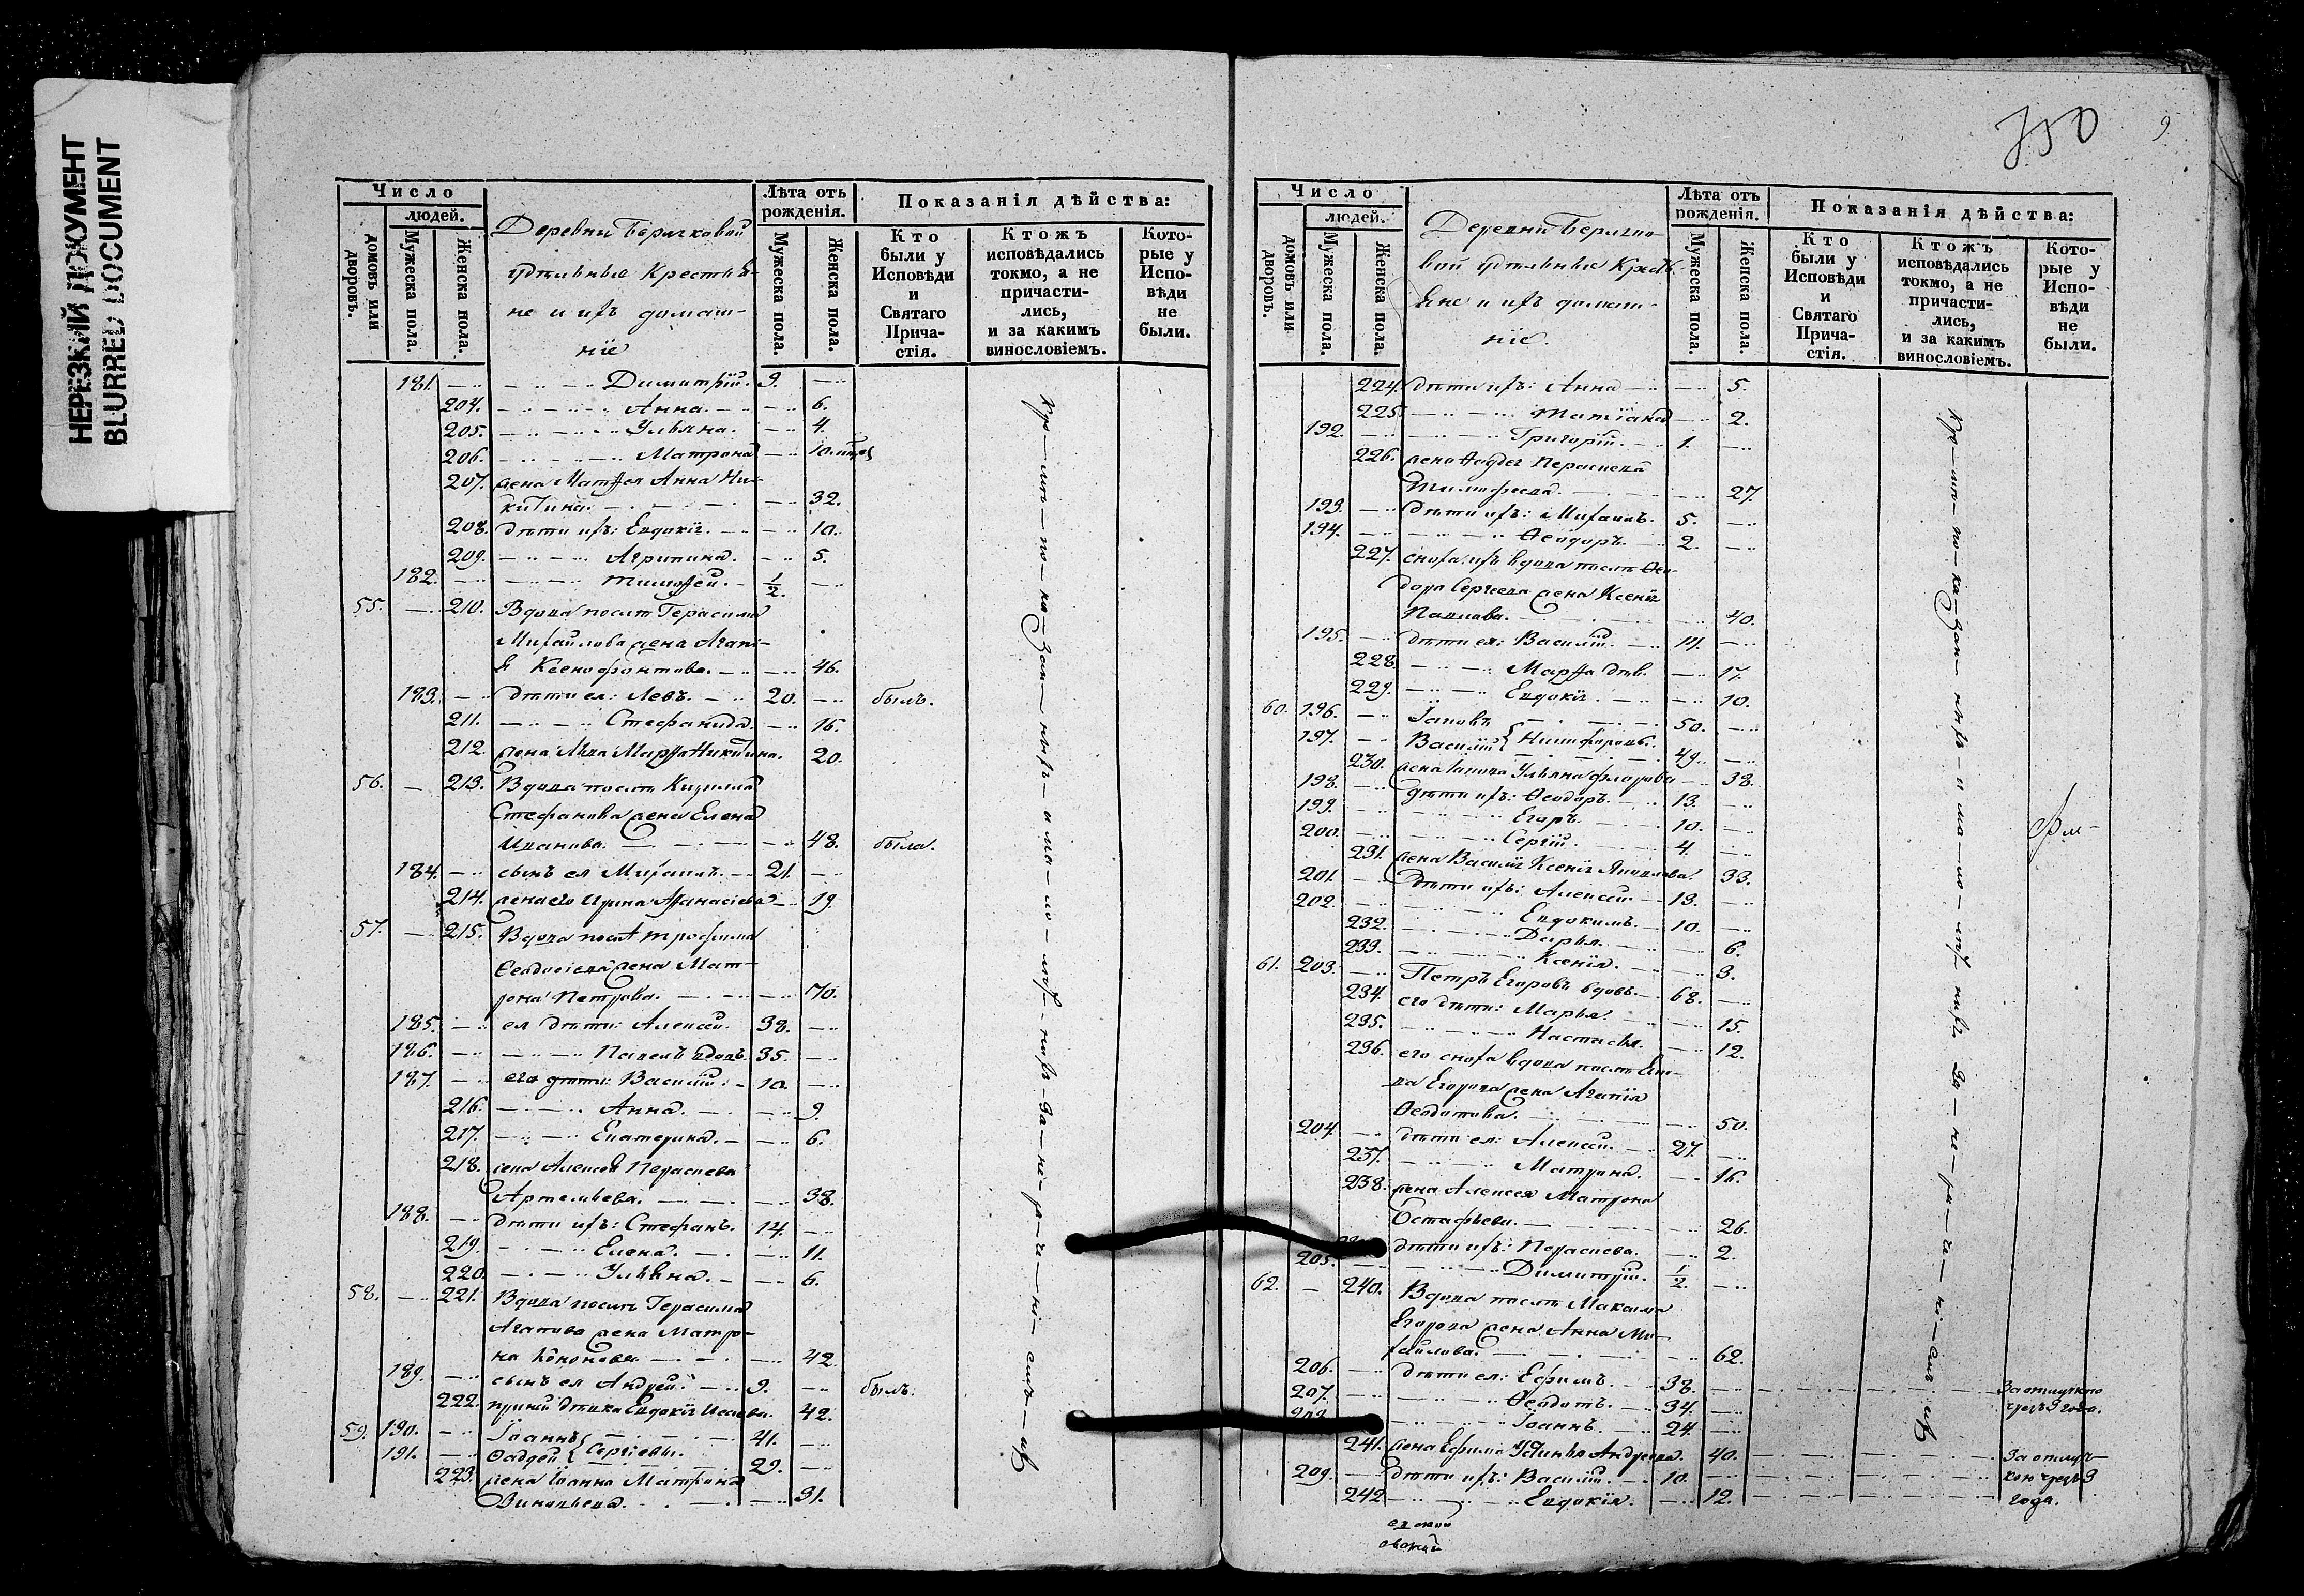 НЕРЕЗКИЙ ДОКУМЕНТ
BLURRED DOCUMENT
Число
людей.
домовъ или дворовъ.
Мужеска пола.
Женска пола.
Деревни
удѣльные Крестья-
не и ихъ домаш-
нїе
Лѣта отъ рожденія.
Мужеска пола.
Женска пола.
Показанія дѣйства:
Кто были у Исповѣди и Святаго Причастія.
Ктожъ исповѣдались токмо, а не причастились, и за какимъ винословіемъ.
Которые у Исповѣди не были.
181. Димитрїй. 9.
204. Анна. 6.
205. Ульяна. 4.
206. Матрона 10.
207. жена Матѳея Анна Ни-
китина. 32.
208. дѣти ихъ: Евдокїя. 10.
209. Агрипина. 5.
182. Тимоѳей. 1/2.
55. 210. Вдова послѣ Герасима
Михайлова жена Агапі-
я Ксенофонтова. 46.
183. дѣти ея: Левъ. 20. былъ.
211. Стефанида. 16.
212. жена Льва Марѳа Никитина. 20.
56. 213. Вдова послѣ Кирилла
Стефанова жена Елена
Иванова. 48. была.
184. сынъ ея Михаилъ. 21.
214. жена его Ирина Аѳанасіева 19.
57. 215. Вдова послѣ Трофима
Ѳеодосіева жена Мат-
рона Петрова. 70.
185. ея дѣти: Алексей. 38.
186. Павелъ вдовъ. 35.
187. его дѣти: Василїй. 10.
216. Анна. 9.
217. Екатерина. 6.
218. жена Алексея Параскева
Артемьева. 38.
188. дѣти ихъ: Стефанъ. 14.
219. Елена. 11.
220. Ульяна. 6.
58. 221. Вдова послѣ Герасима
Агапова жена Матро-
на Кононова 42.
189. сынъ ея Андрей. 9. былъ.
222. Евдокїя Исаева. 42.
59. 190. Іоаннъ 41.
191. Ѳаддей { Сергіевы. 29.
223. жена Іоанна Матрона
Зиновьева. 31.
9
Число
людей.
домовъ или дворовъ.
Мужеска пола.
Женска пола.
Деревни
вой удѣльные Кресть-
яне и ихъ домаш-
нїе.
Лѣта отъ рожденія.
Мужеска пола.
Женска пола.
Показанія дѣйства:
Кто были у Исповѣди и Святаго Причастія.
Ктожъ исповѣдались токмо, а не причастились, и за какимъ винословіемъ.
Которые у Исповѣди не были.
224. дѣти ихъ: Анна 5.
225. Татїана 2.
192. Григорїй. 1.
226. жена Ѳаддея Параскева
Тимофеева. 27.
193. дѣти ихъ: Михаилъ. 5.
194. Ѳеодоръ. 2.
227. сноха ихъ вдова послѣ Ѳео-
дора Сергеева жена Ксенїя
Павлова. 40.
195. дѣти ея: Василїй. 14.
228. Марѳа дѣв. 17.
229. Евдокїя. 10.
60. 196. Іаковъ 50.
197. Василїй { Никифоровы. 49.
230. жена Іакова Ульяна Флорова 38.
198. дѣти ихъ: Ѳеодоръ. 13.
199. Егоръ. 10.
200. Сергїй. 4.
231. жена Василїя Ксенїя Яковлева. 33.
201. дѣти ихъ: Алексей 13.
202. Евдокимъ. 10.
232. Дарья. 6.
233. Ксенїя. 3.
61. 203. Петръ Егоровъ вдовъ. 68.
234. его дѣти: Марья. 15.
235. Настасья. 12.
236. его сноха вдова послѣ
Егорова жена Агапїя
Ѳеодотова. 50.
204. дѣти ея: Алексей. 27.
237. Матрона. 16.
238. жена Алексея Матрона
Остафьева. 26.
дѣти ихъ: Параскева. 2.
205. Димитрїй. 1/2
62. 240. Вдова послѣ Максима
Егорова жена Анна Ми-
хайлова. 62.
206. дѣти ея: Ефимъ. 38. За отлучкою
207. Ѳеодотъ. 34. чрезъ 3 года.
Іоаннъ. 24.
241. жена Ефима Устинья Андреева. 40. За отлуч-
209. дѣти ихъ: Василїй. 10. кою чрезъ 3
242 Евдокїя. 12. года.